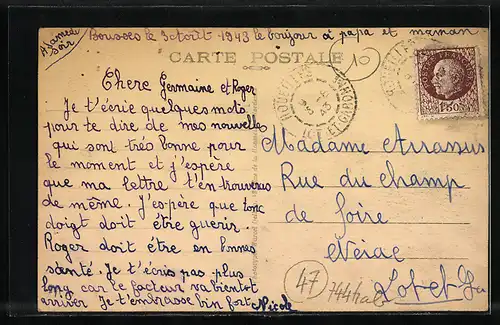 Samedi soir
Bousses le 3 Août 1943 le bonjour à papa et maman
CARTE POSTALE
Chere Germaine et Roger
Je t'écrie quelques mots
pour te dire de mes nouvelles
qui sont très bonne pour
le moment et j'espère
que ma lettre t'en trouveras
de même. J'espère que ton
doigt doit être guerir.
Roger doit être en bonnes
santé. Je t'écris pas plus
long car le facteur va bientôt
arriver Je t'embrasse bien fort Nicole
Madame Arrassus
Rue du Champ
de foire
Nérac
Lot et Gne
47
1F50